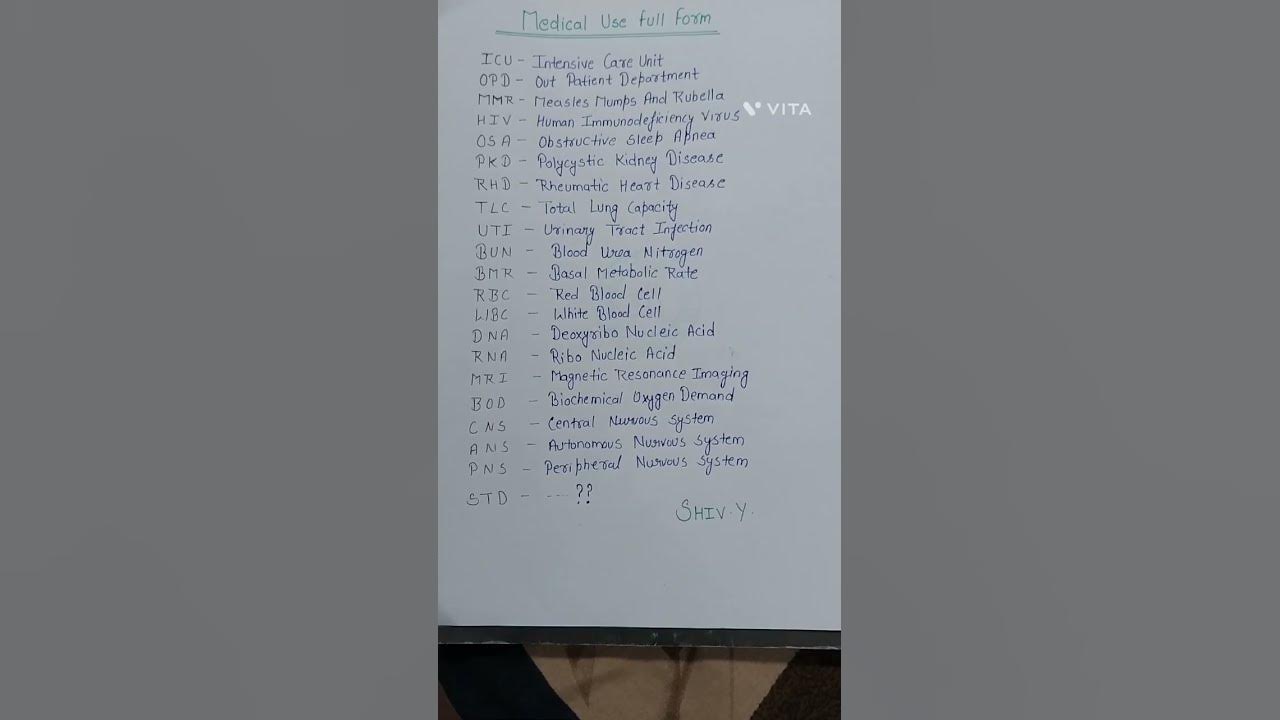 Medical Use Full Form
ICU - Intensive Care Unit
OPD - Out Patient Department
MMR - Measles Mumps And Rubella
VITA
HIV - Human Immunodeficiency Virus
OSA - Obstructive Sleep Apnea
PKD - Polycystic Kidney Disease
RHD - Rheumatic Heart Disease
TLC - Total Lung Capacity
UTI - Urinary Tract Infection
BUN - Blood Urea Nitrogen
BMR - Basal Metabolic Rate
RBC - Red Blood Cell
WBC - White Blood Cell
DNA - Deoxyribo Nucleic Acid
RNA - Ribo Nucleic Acid
MRI - Magnetic Resonance Imaging
BOD - Biochemical Oxygen Demand
CNS - Central Nurvous System
ANS - Autonomous Nurvous System
PNS - Peripheral Nurvous System
STD - ---- ??
SHIV.Y.